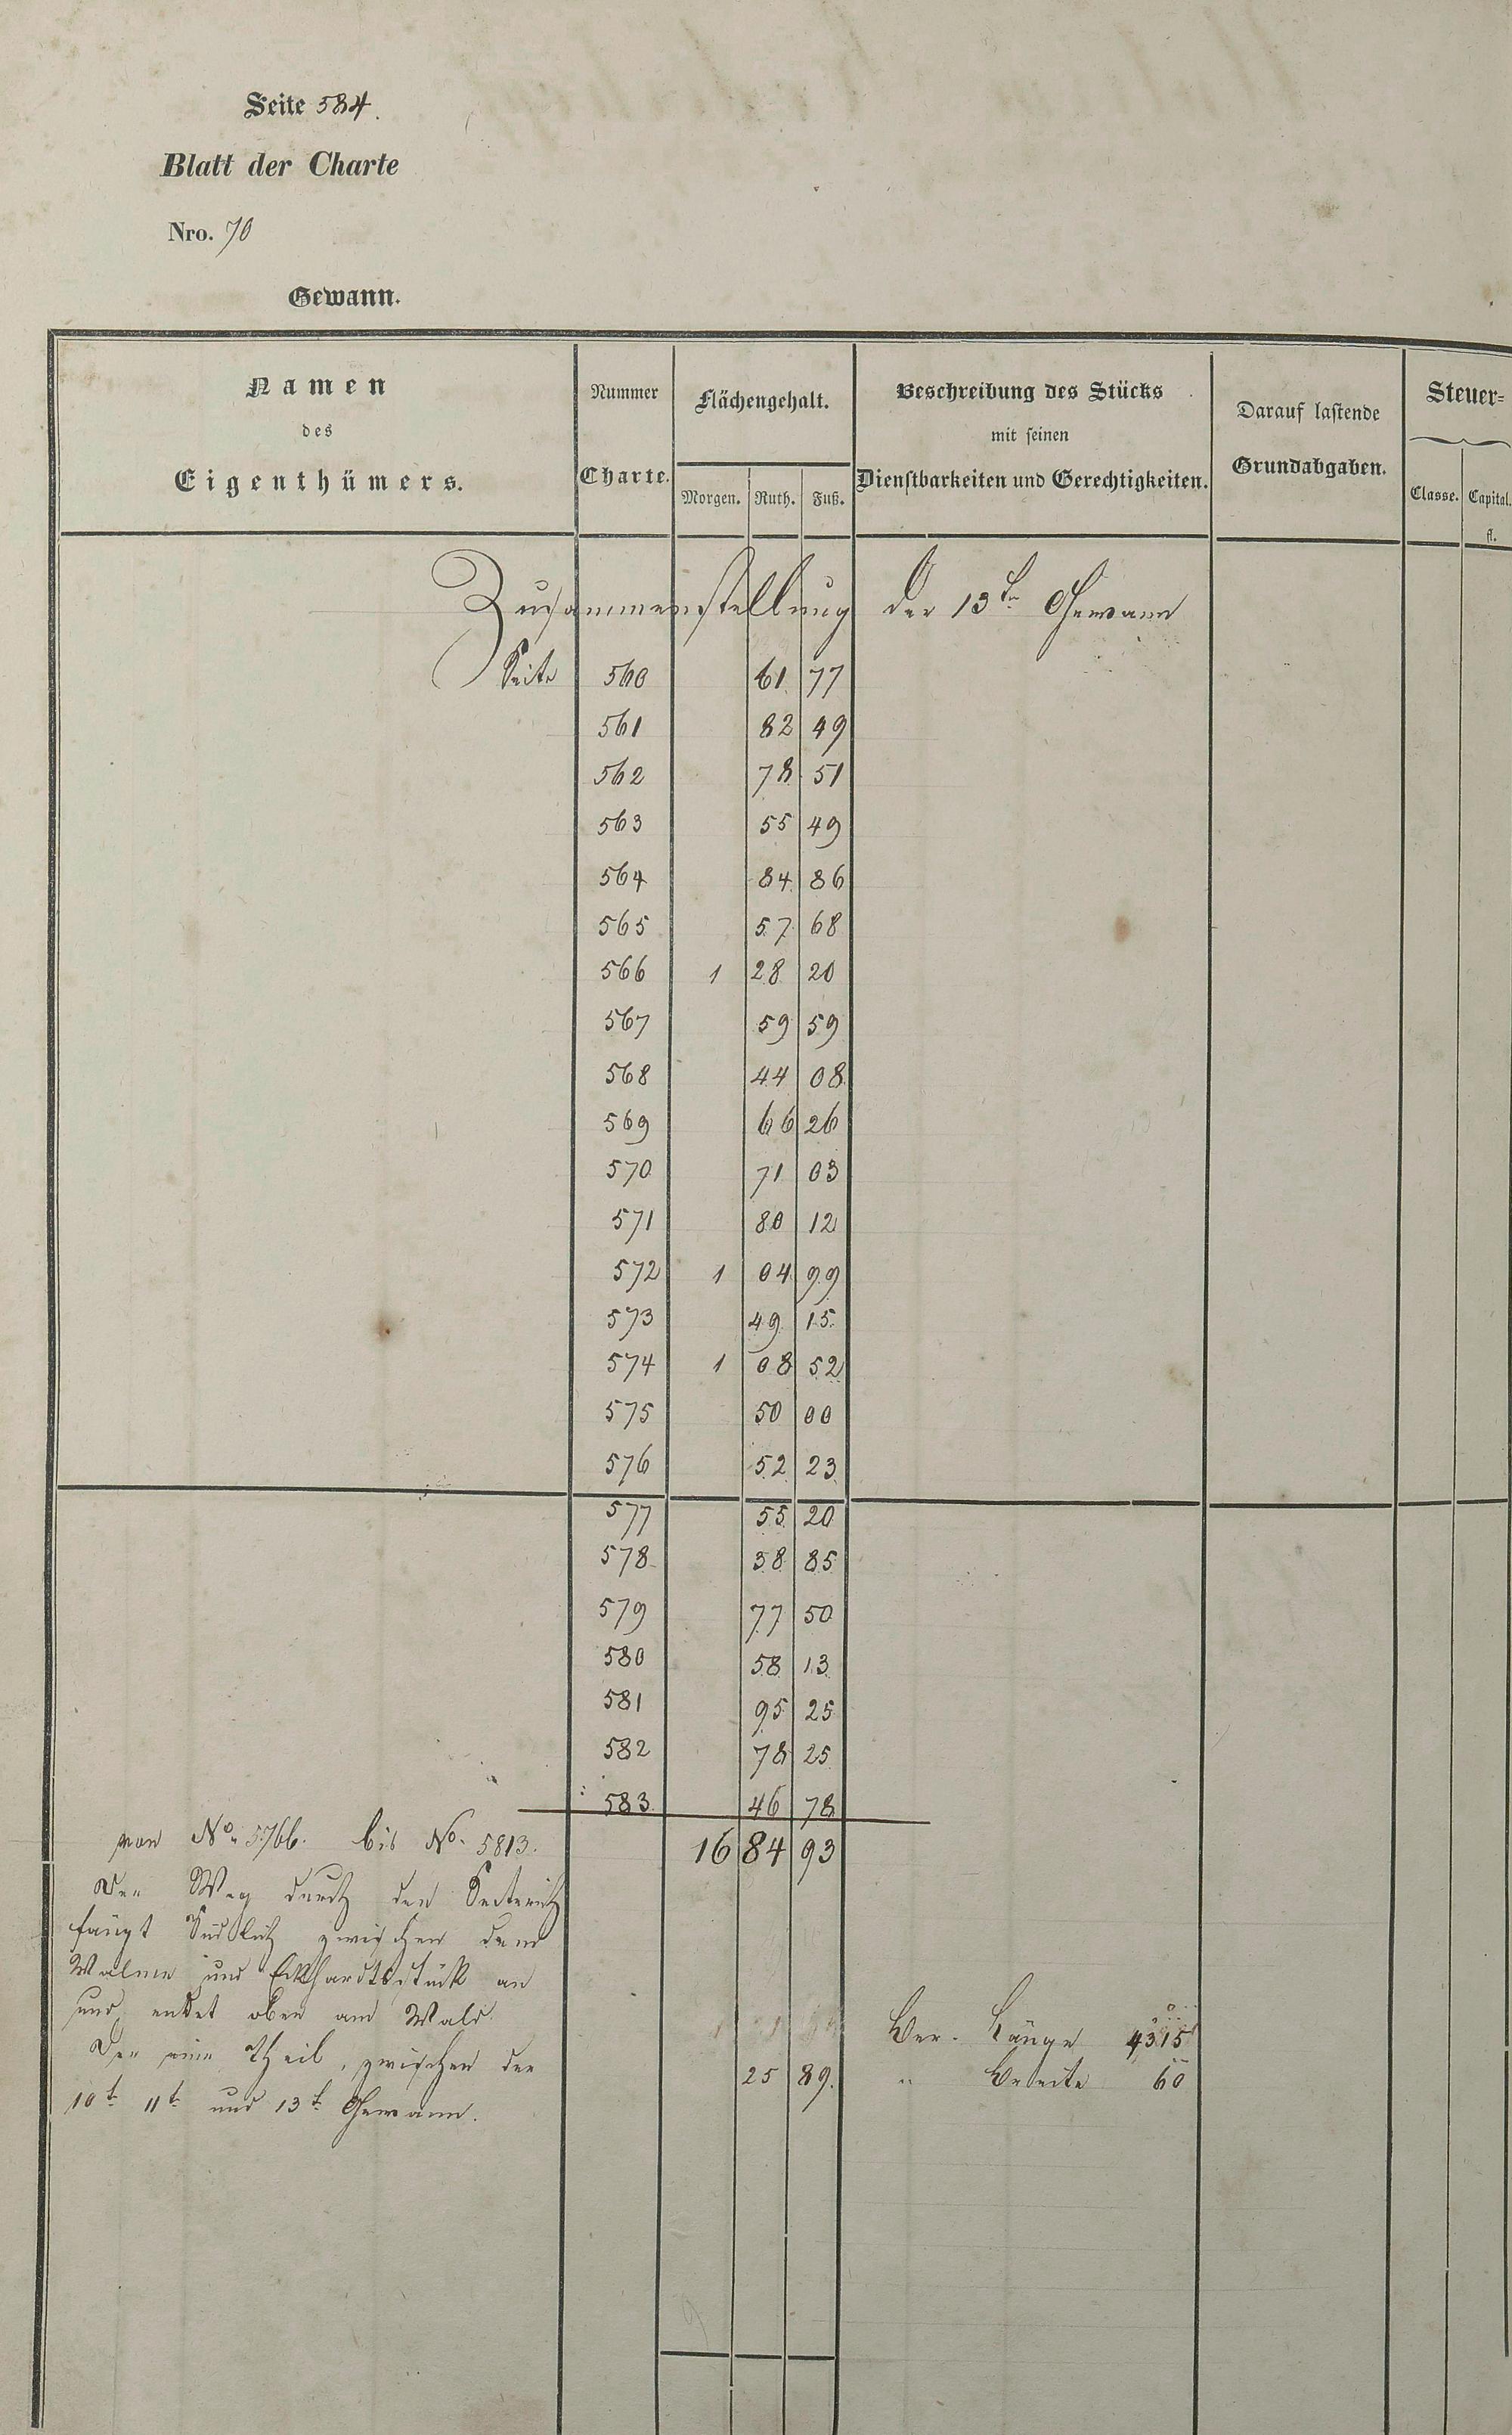 Seite 584.
Blatt der Charte
Nro. 70
Gewann.
Namen
des
Eigenthümers.
Nummer
Charte.
Flächengehalt.
Morgen. Ruth. Fuß.
Beschreibung des Stücks
mit seinen
Dienstbarkeiten und Gerechtigkeiten.
Darauf lastende
Grundabgaben.
Steuer=
Classe. Capital.
fl.
Zusammenstellung der 13te Gewann
Seite 560 61 77
561 82 49
562 78 51
563 55 49
564 84 86
565 57 68
566 1 28 20
567 59 59
568 44 08
569 66 26
570 71 03
571 80 12
572 1 04 99
573 49 15
574 1 08 52
575 50 00
576 52 23
577 55 20
578 38 85
579 77 50
580 58 13
581 95 25
582 78 25
583 46 78
von No. 5766. bis No. 5813. 16 84 93
Der Weg durch den
fängt Südlich zwischen dem
und Eckhardtsstück an
und endet oben am Wald.
Der eine Theil, zwischen der
10t 11t und 13t Gewann.
Ver. Länge 4315
25 89. " Breite 60